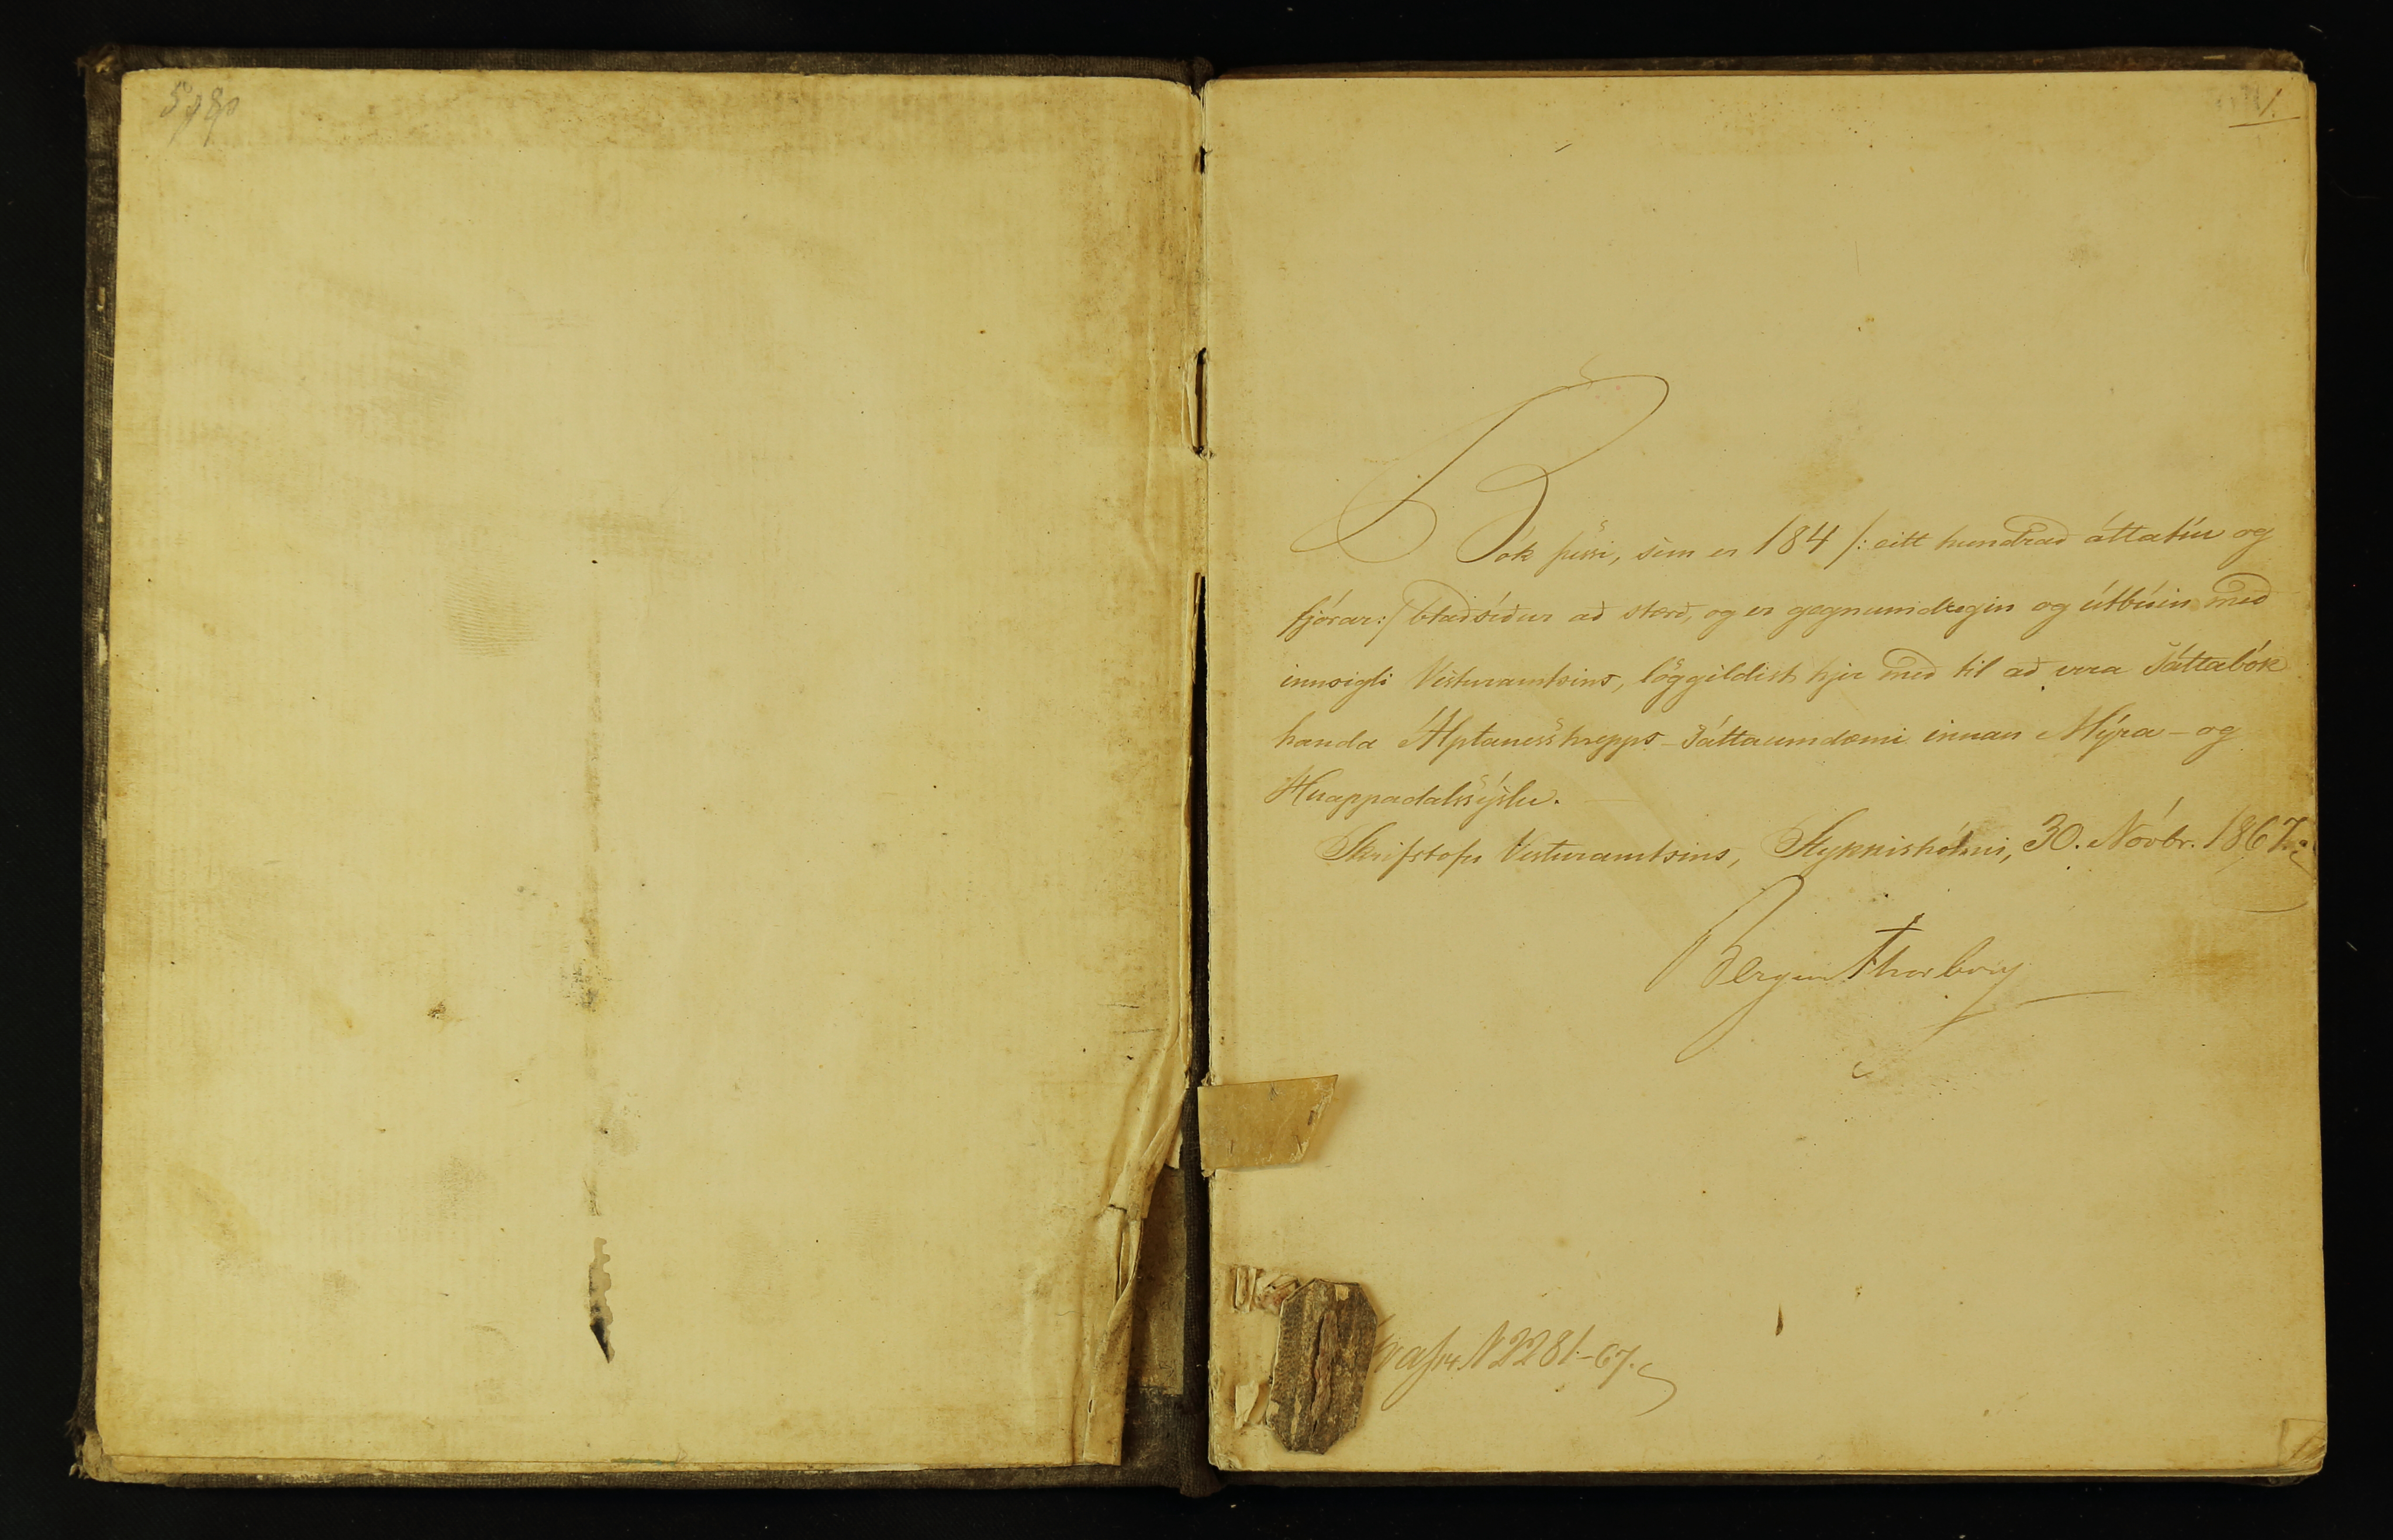 1.
Bók þessi, sem er 184 /: eitt hundrað áttatíu og
fjórar:/ blaðsíður að stærð, og er gegnumdregin og útbúin með
innsigli Vesturamtsins, löggildist hjer með til að vera Sáttabók
handa Álptanesshrepps-Sáttaumdæmi innan Mýra- og
Hnappadalssýslu.
Skrifstofu Vesturamtsins, Stykkishólmi, 30. Nóvbr. 1867.
Bergur Thorberg
N 2281-67.